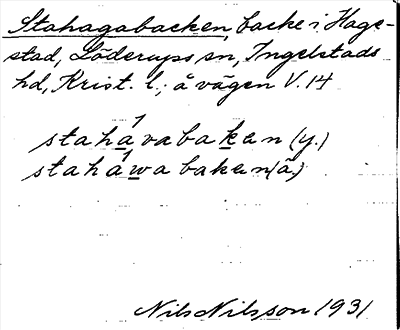 Stahagabacken, backe i Hage-
stad, Löderups sn, Ingelstads
hd, Krist. l.; å vägen V. 14
stahávabaken (y.)
staháwabaken (ä.)
Nils Nilsson 1931